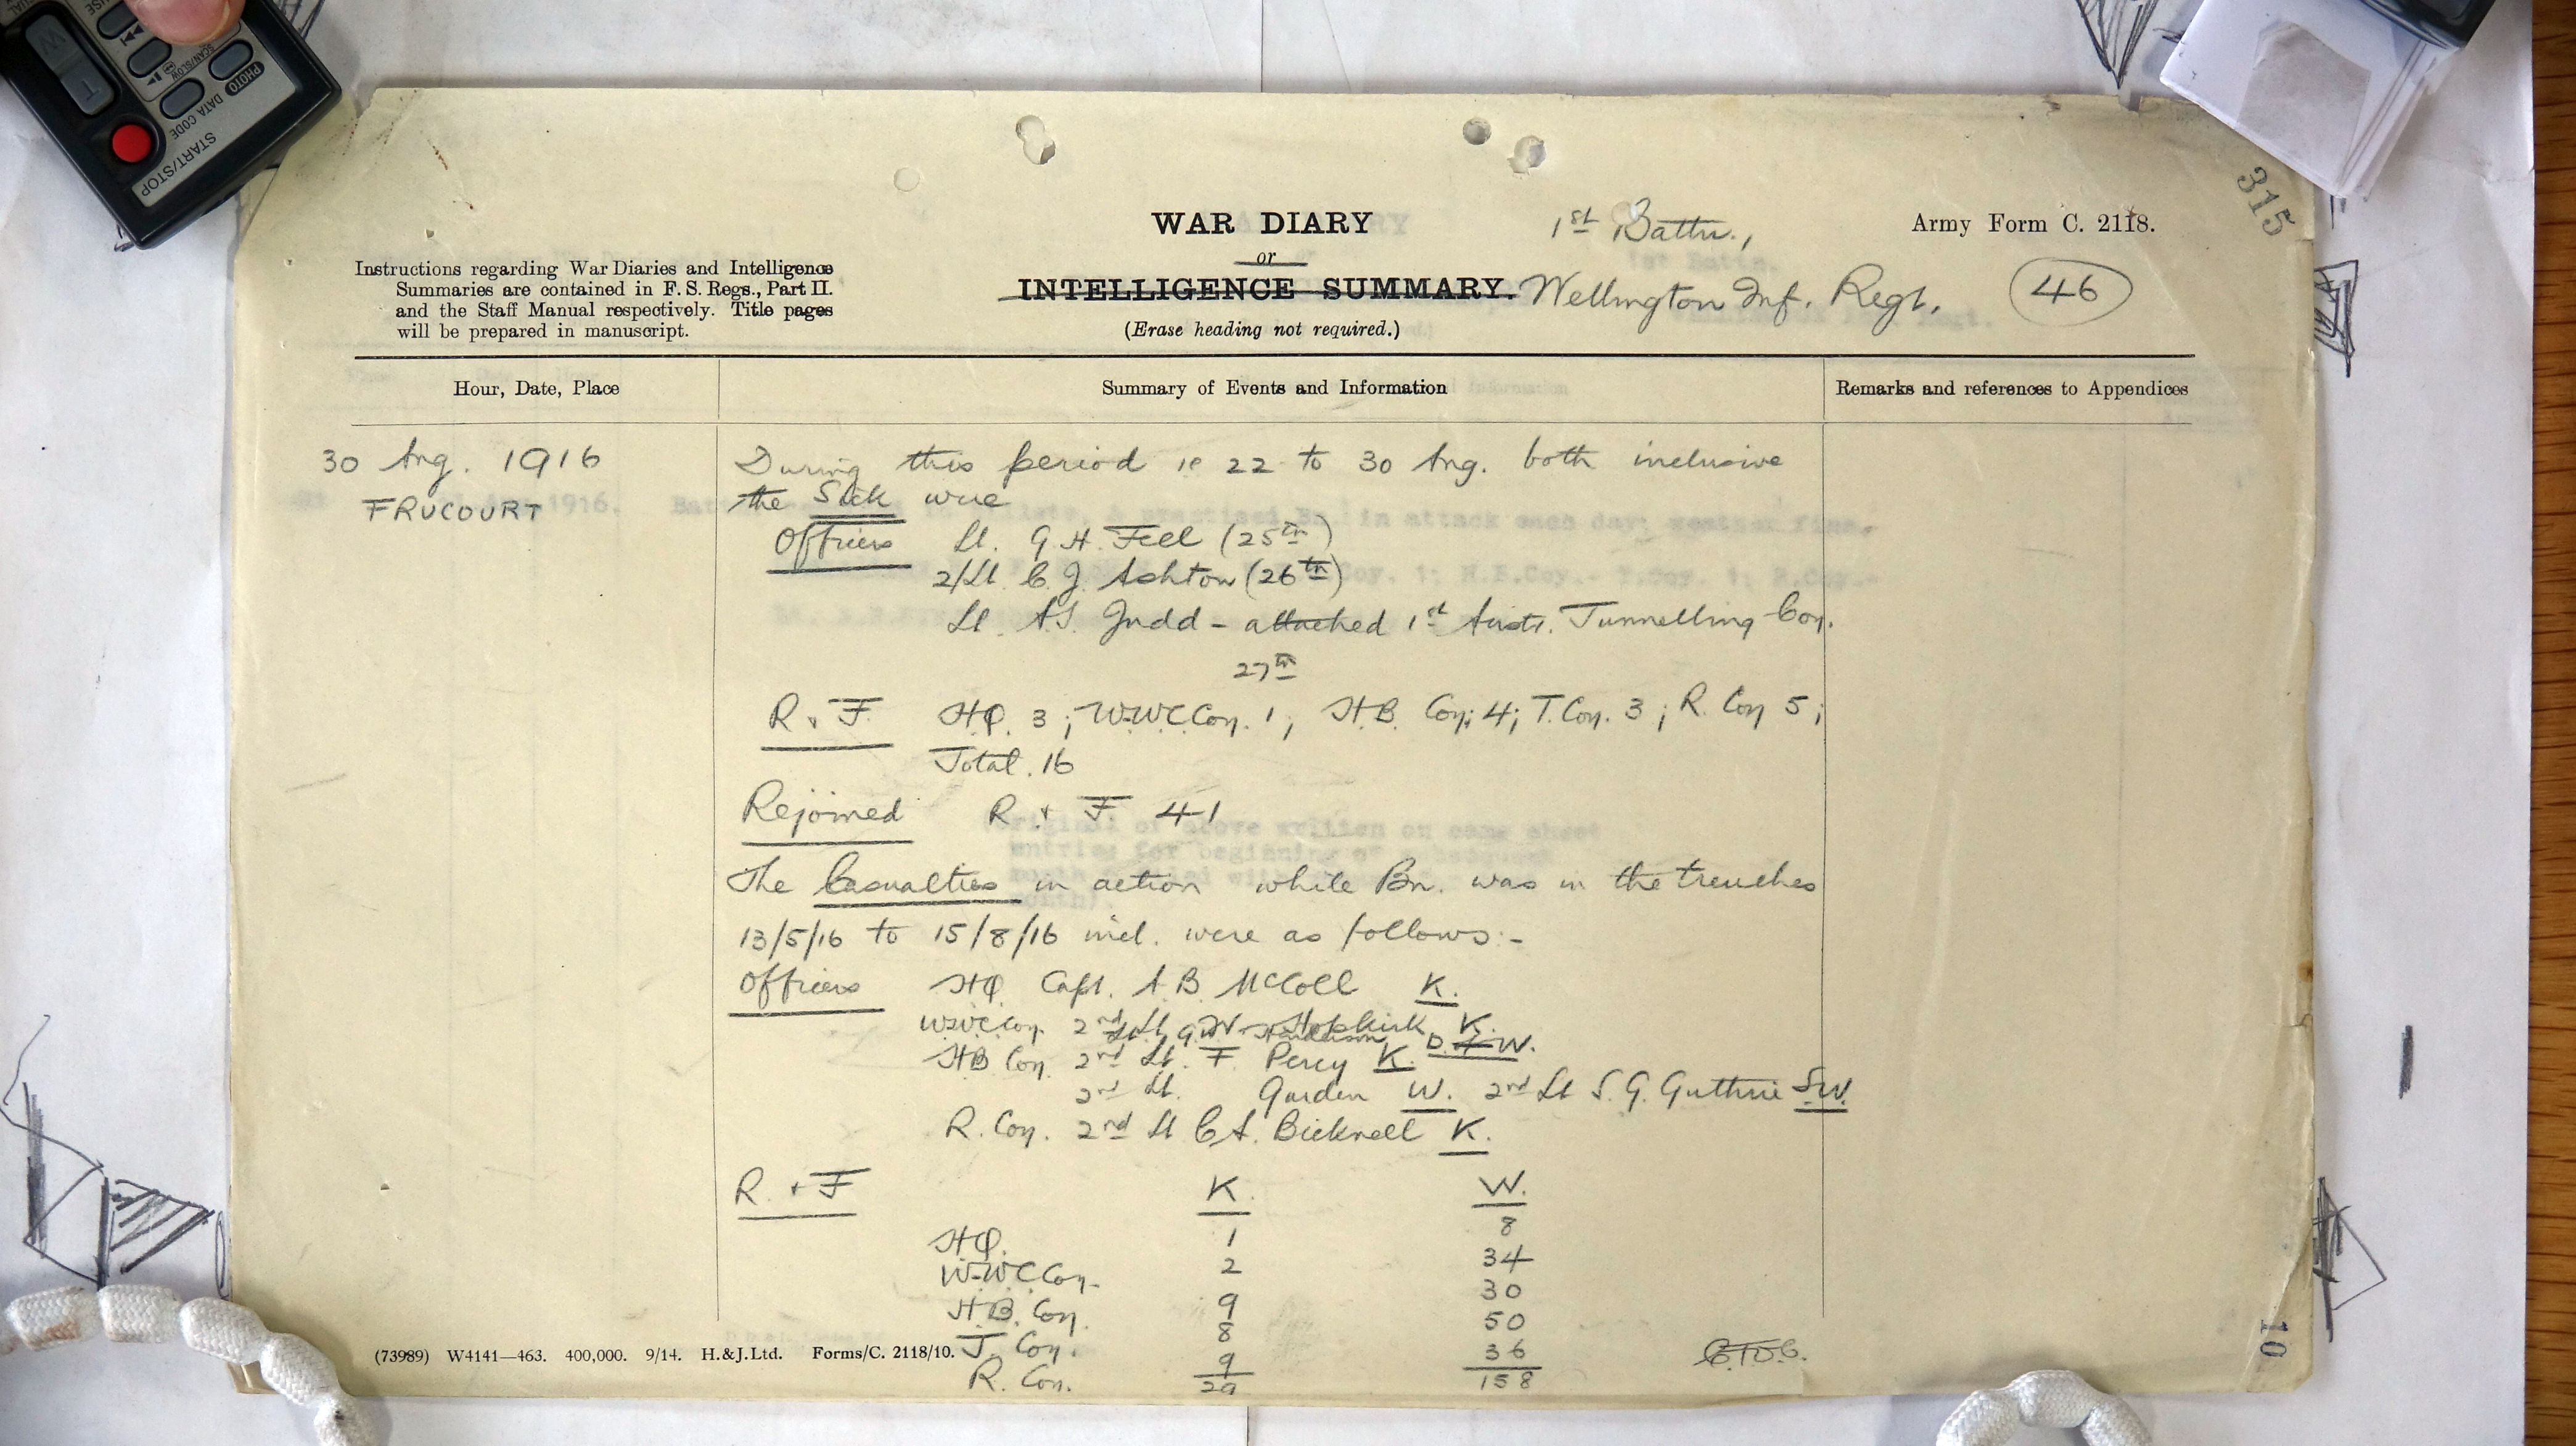 PHOTO
SCAN/SLOW
DATA CODE
START/STOP
W
T
315
WAR DIARY
or
INTELLIGENCE SUMMARY.
(Erase heading not required.)
1st Battn.,
Wellington Inf. Regt.
Army Form C. 2118.
46
Instructions regarding War Diaries and Intelligence
Summaries are contained in F. S. Regs., Part II.
and the Staff Manual respectively. Title pages
will be prepared in manuscript.
Hour, Date, Place
Summary of Events and Information
Remarks and references to Appendices
30 Aug. 1916
FRUCOURT
During this period ie 22 to 30 Aug. both inclusive
the Sick were
Officers Lt. G H. Fell (25th)
2/Lt C. J. Ashton (26th)
Lt. A.S. Judd - attached 1st Austr. Tunnelling Coy.
27th
R & F. H.Q. 3; W.W.C. Coy. 1; H.B. Coy; 4; T. Coy. 3; R. Coy 5;
Total. 16
Rejoined R. & F 41
The Casualties in action while Bn. was in the trenches
13/5/16 to 15/8/16 incl. were as follows:-
Officers HQ. Capt. A. B. McColl K.
W.W.C Coy. 2nd Lt. Hopkirk K.
Lt. G.W. Henderson D. of W.
H B Coy. 2nd Lt. F Percy K.
2nd Lt. Garden W. 2nd Lt S. G. Guthrie S.W.
R. Coy. 2nd Lt C A. Bicknell K.
R. & F K. W.
H.Q. 1 8
W.W.C Coy. 2 34
H.B. Coy. 9 30
T. Coy. 8 50
R. Coy. 9 36
29 158
(73989) W4141—463. 400,000. 9/14. H.&J.Ltd. Forms/C. 2118/10.
10